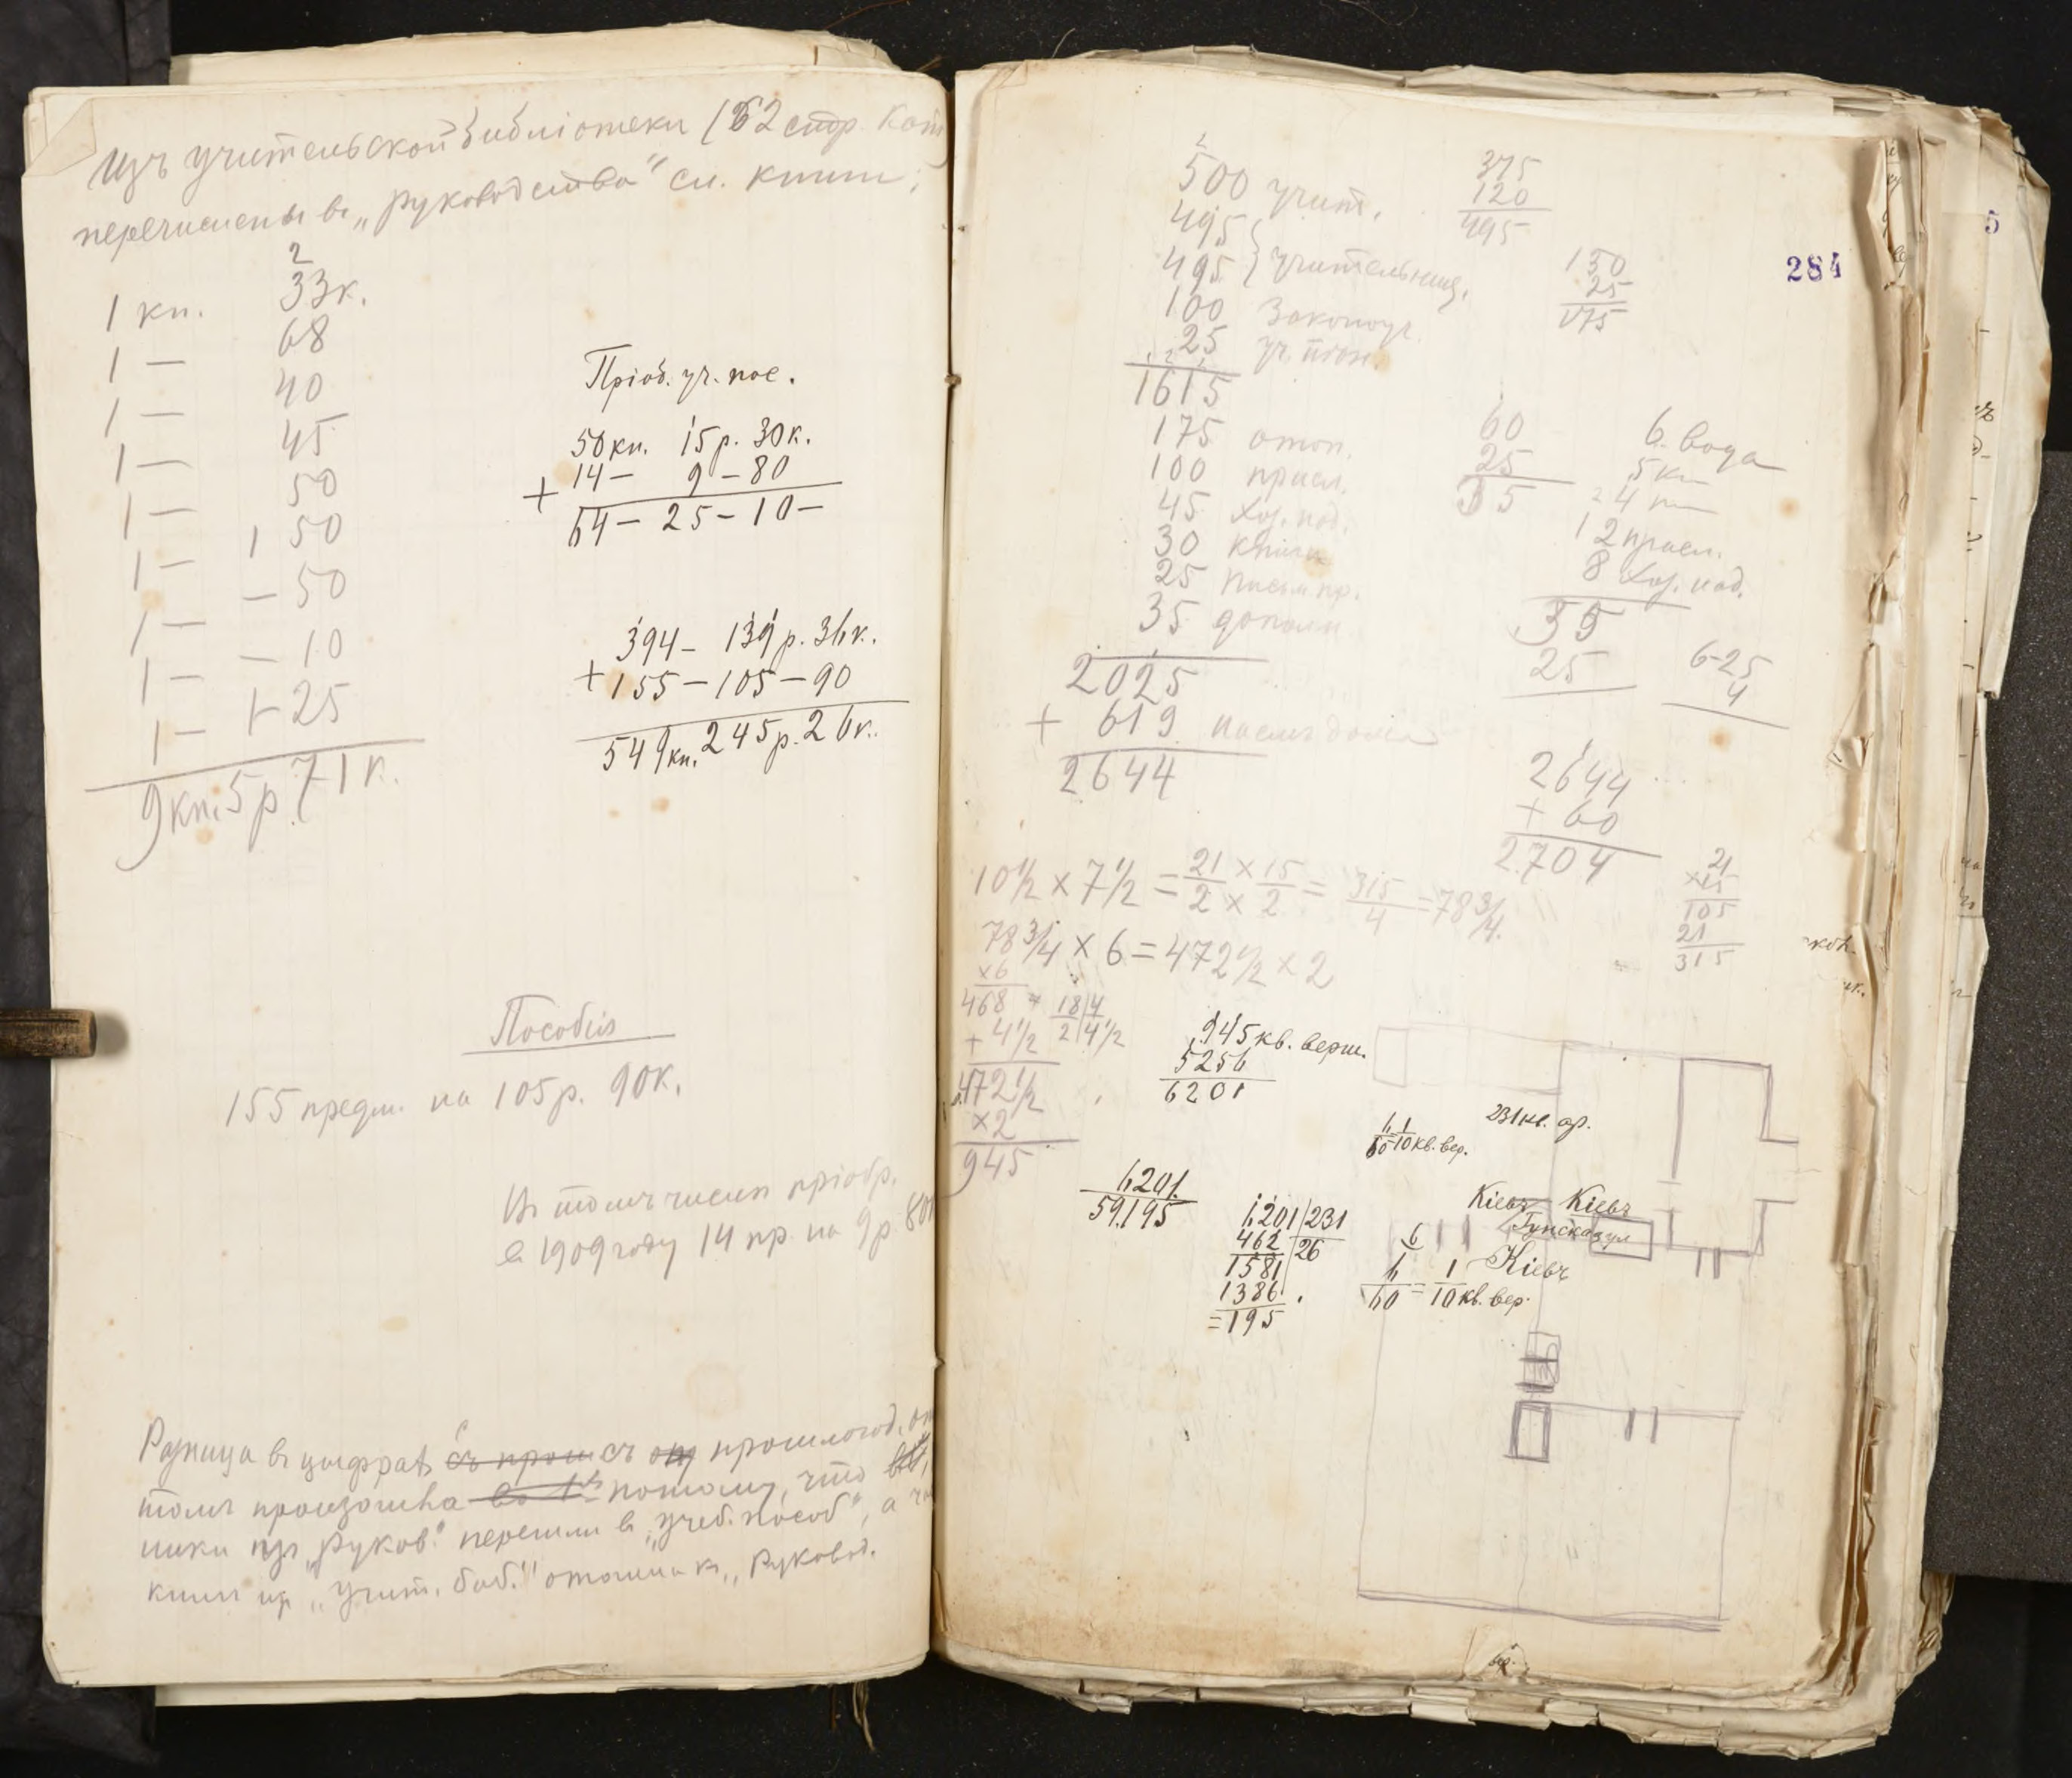 Изъ учительской библіотеки (62 стр. Кат
перечислены въ „руководства" сл. книги:
2
1 кн. 33к.
1 — 68
1 — 40
1 — 45
1 — 50
1 — 1 50
1 — — 50
1 — — 10
1 — 1 — 25
9 кн. 5 р. 71 к.
Пріоб. уч. пос.
50 кн. 15 р. 30 к.
+ 14 — 9 — 80
64 — 25 — 10 —
394 — 139 р. 36 к.
+ 155 — 105 — 90
549 кн. 245 р. 26 к.
Пособія
155 предм. на 105 р. 90 к.
Въ томъ числѣ пріобр.
въ 1909 году 14 пр. на 9 р. 80к
Разница въ цифрахъ съ прош съ от прошлогод. от
томъ произошла во 1ых потому, что
ники изъ „Руков." перешли въ „учеб. пособ", а
книги из „Учит. биб." отошли къ „Руковод.
284
2
500 учит.
495 } учительниц.
495
100 Законоуч.
25 уч. пѣн.
1615
175 отоп.
100 присл.
45 Хоз. над.
30 книги
25 Письм. пр.
35 дополн
2025
+ 619 наемъ дома
2644
375
120
495
150
25
175
60
25
85
6 вода
5 кн
4
12 присл.
8 Хоз. над.
35
25
6-25
4
2644
+ 60
2.704
10 1/2 × 7 1/2 = 21/2 × 15/2 = 315/4 = 78 3/4.
78 3/4 × 6 = 472 1/2 × 2
×6
468 + 18|4
+ 4 1/2 2|4 1/2
472 1/2
×2
945
21
×15
105
21
315
945 кв. верш.
5256
6201
231 кв. ар.
6/60 1/10 кв. вер.
6201
59.195
6201|231
462|26
1581
1386
=195
Кіевъ Кіевъ
Кіевъ
6
6/60 = 1/10 кв. вер.